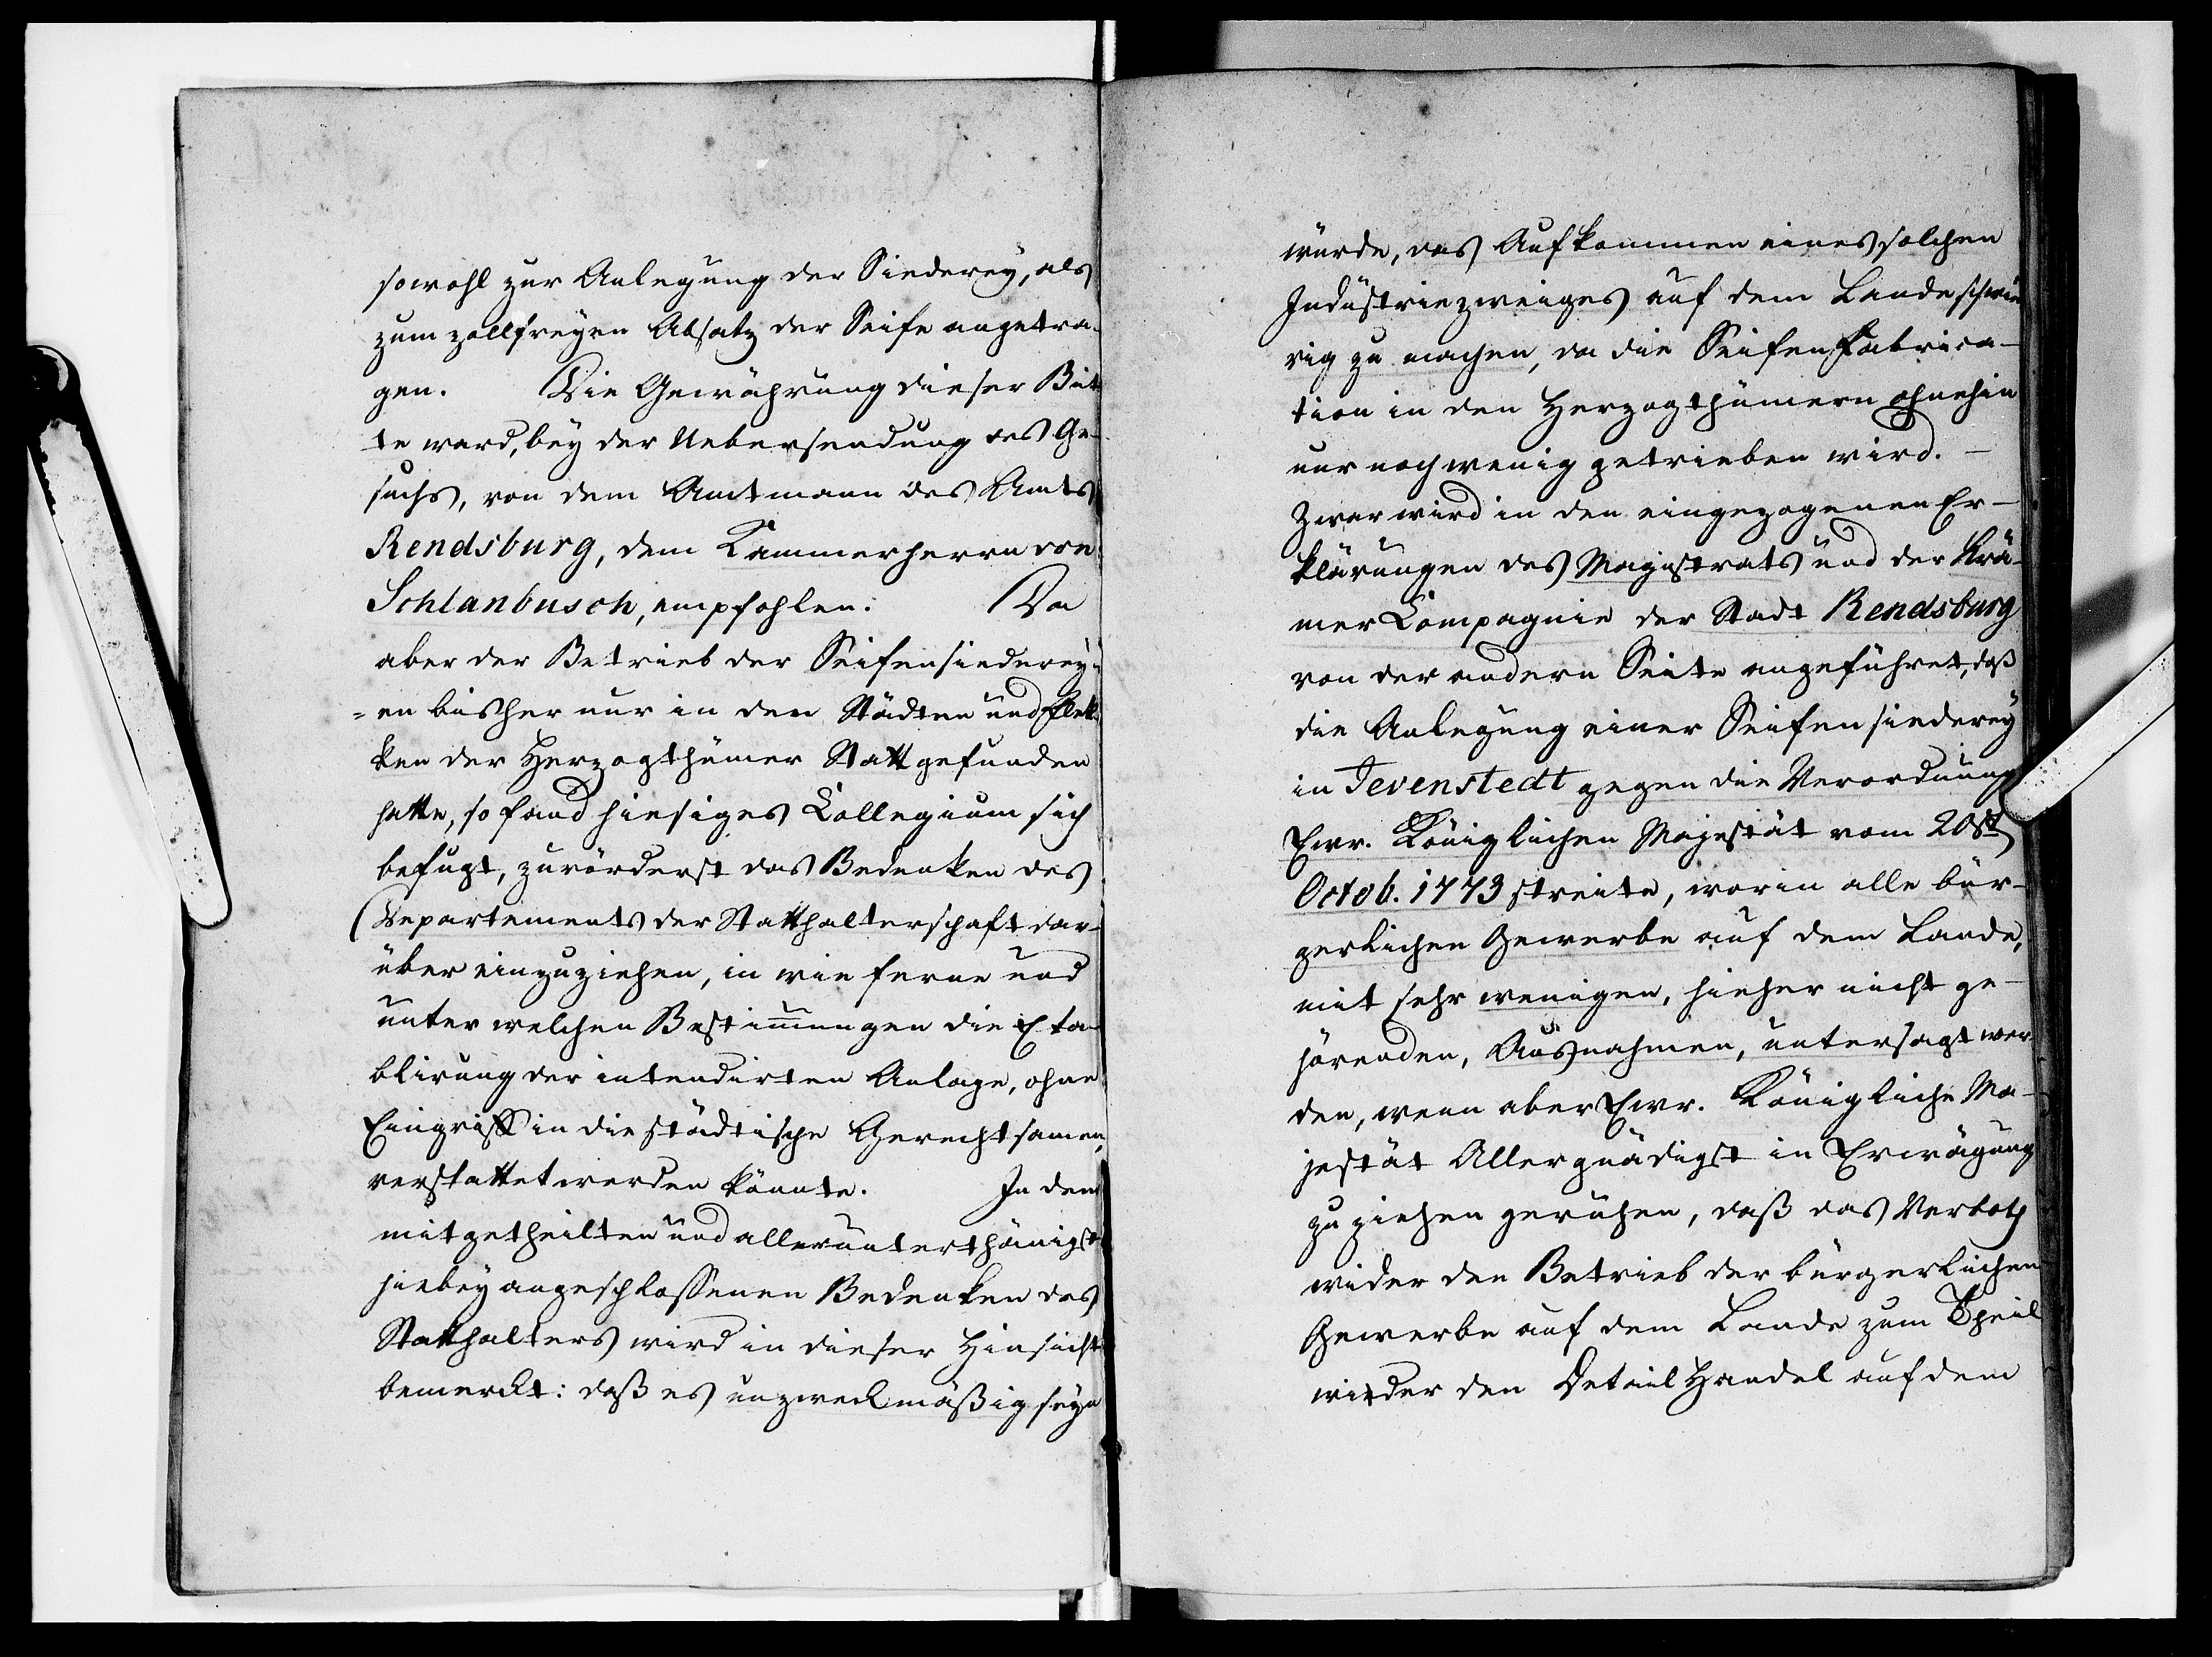 sowohl zur Anlegung der Siederey, als
zum zollfreyen Absatz der Seife angetra-
gen. Die Gewährung dieser Bit
te ward, bey der Uebersendung des Ge-
suchs, von dem Amtmann des Amts
Rendsburg, dem Kammerherrn von
Schlanbusch, empfohlen. Da
aber der Betrieb der Seifensiederey-
=en bisher nur in den Städten und Flek-
ken der Herzogthümer Statt gefunden
hatte, so fand hiesiges Collegium sich
befugt, zuvörderst das Bedenken des
Departements der Statthalterschaft dar-
über einzuziehen, in wie ferne und
unter welchen Bestimungen die Eta-
blirung der intendirten Anlage, ohne
Eingriff in die städtische Gerechtsamen,
verstattet werden könnte. In dem
mitgetheilten und allerunterthänigst
hiebey angeschlossenen Bedenken des
Statthalters wird in dieser Hinsicht
bemerckt: daß es unzweckmäßig seyn
würde, das Aufkommen eines solchen
Industriezweiges auf dem Lande schwie
rig zu machen, da die Seifenfabrica-
tion in den Herzogthümern ohnehin
nur noch wenig getrieben wird. -
Zwar wird in den eingezogenen Er-
klärungen des Magistrats und der Krä-
mer Compagnie der Stadt Rendsburg
von der andern Seite angeführet, daß
die Anlegung einer Seifensiederey
in Jevenstedt gegen die Verordnung
Ewr. Königlichen Majestät vom 20st
Octob. 1773 streite, worin alle bür-
gerlichen Gewerbe auf dem Lande,
mit sehr wenigen, hieher nicht ge-
hörenden, Ausnahmen, untersagt wer-
den, wenn aber Ewr. Königliche Ma-
jestät Allergnädigst in Erwägung
zu ziehen geruhen, daß das Verboth
wider den Betrieb der bürgerlichen
Gewerbe auf dem Lande zum Theil
wieder den Detail Handel auf dem